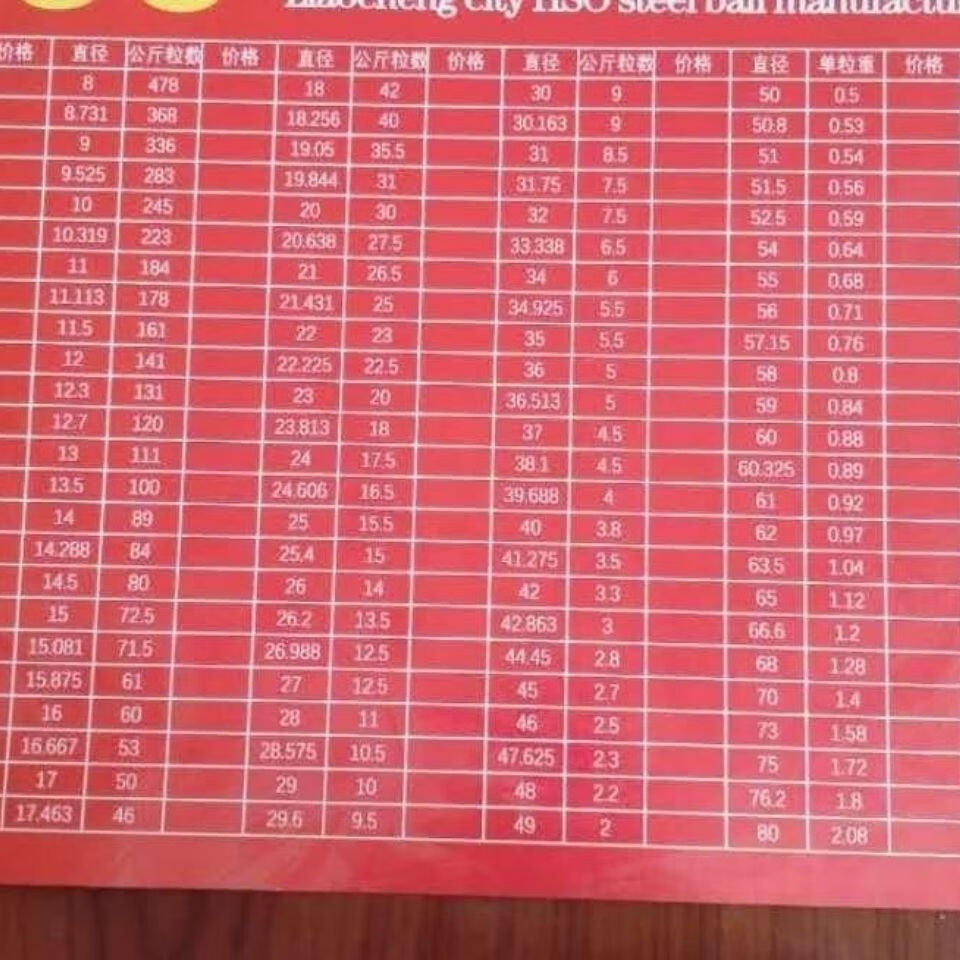 Liaocheng city HSO steel ball
价格 直径 公斤粒数 价格 直径 公斤粒数 价格 直径 公斤粒数 价格 直径 单粒重 价格
8 478 18 42 30 9 50 0.5
8.731 368 18.256 40 30.163 9 50.8 0.53
9 336 19.05 35.5 31 8.5 51 0.54
9.525 283 19.844 31 31.75 7.5 51.5 0.56
10 245 20 30 32 7.5 52.5 0.59
10.319 223 20.638 27.5 33.338 6.5 54 0.64
11 184 21 26.5 34 6 55 0.68
11.113 178 21.431 25 34.925 5.5 56 0.71
11.5 161 22 23 35 5.5 57.15 0.76
12 141 22.225 22.5 36 5 58 0.8
12.3 131 23 20 36.513 5 59 0.84
12.7 120 23.813 18 37 4.5 60 0.88
13 111 24 17.5 38.1 4.5 60.325 0.89
13.5 100 24.606 16.5 39.688 4 61 0.92
14 89 25 15.5 40 3.8 62 0.97
14.288 84 25.4 15 41.275 3.5 63.5 1.04
14.5 80 26 14 42 3.3 65 1.12
15 72.5 26.2 13.5 42.863 3 66.6 1.2
15.081 71.5 26.988 12.5 44.45 2.8 68 1.28
15.875 61 27 12.5 45 2.7 70 1.4
16 60 28 11 46 2.5 73 1.58
16.667 53 28.575 10.5 47.625 2.3 75 1.72
17 50 29 10 48 2.2 76.2 1.8
17.463 46 29.6 9.5 49 2 80 2.08